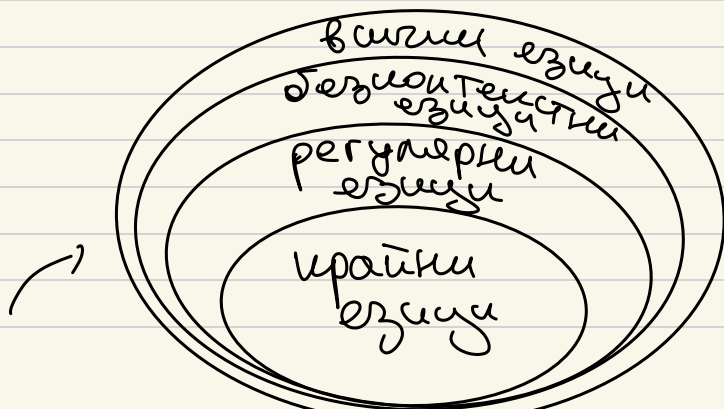 всички езици
безконтекстни
езици
регулярни
езици
крайни
езици